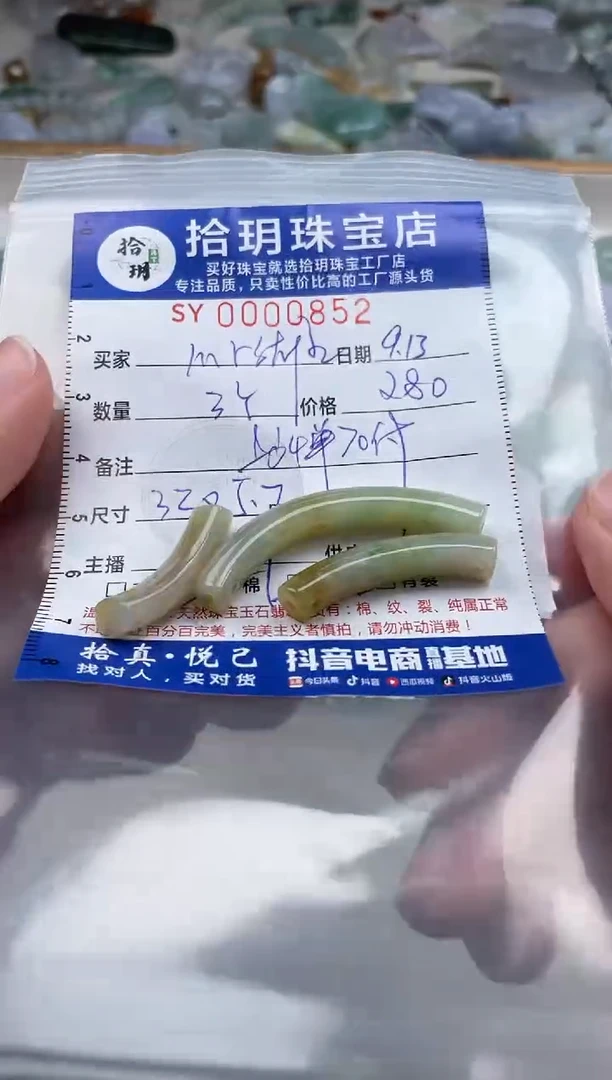 拾玥
拾玥珠宝店
买好珠宝就选拾玥珠宝工厂店
专注品质，只卖性价比高的工厂源头货
SY 0000852
买家 日期 9.13
数量 3个 价格 280
备注
尺寸
主播
棉
天然珠宝玉石
有：棉、纹、裂、纯属正常
百分百完美，完美主义者慎拍，请勿冲动消费！
拾真·悦己
找对人，买对货
抖音电商直播基地
今日头条 抖音 西瓜视频 抖音火山版